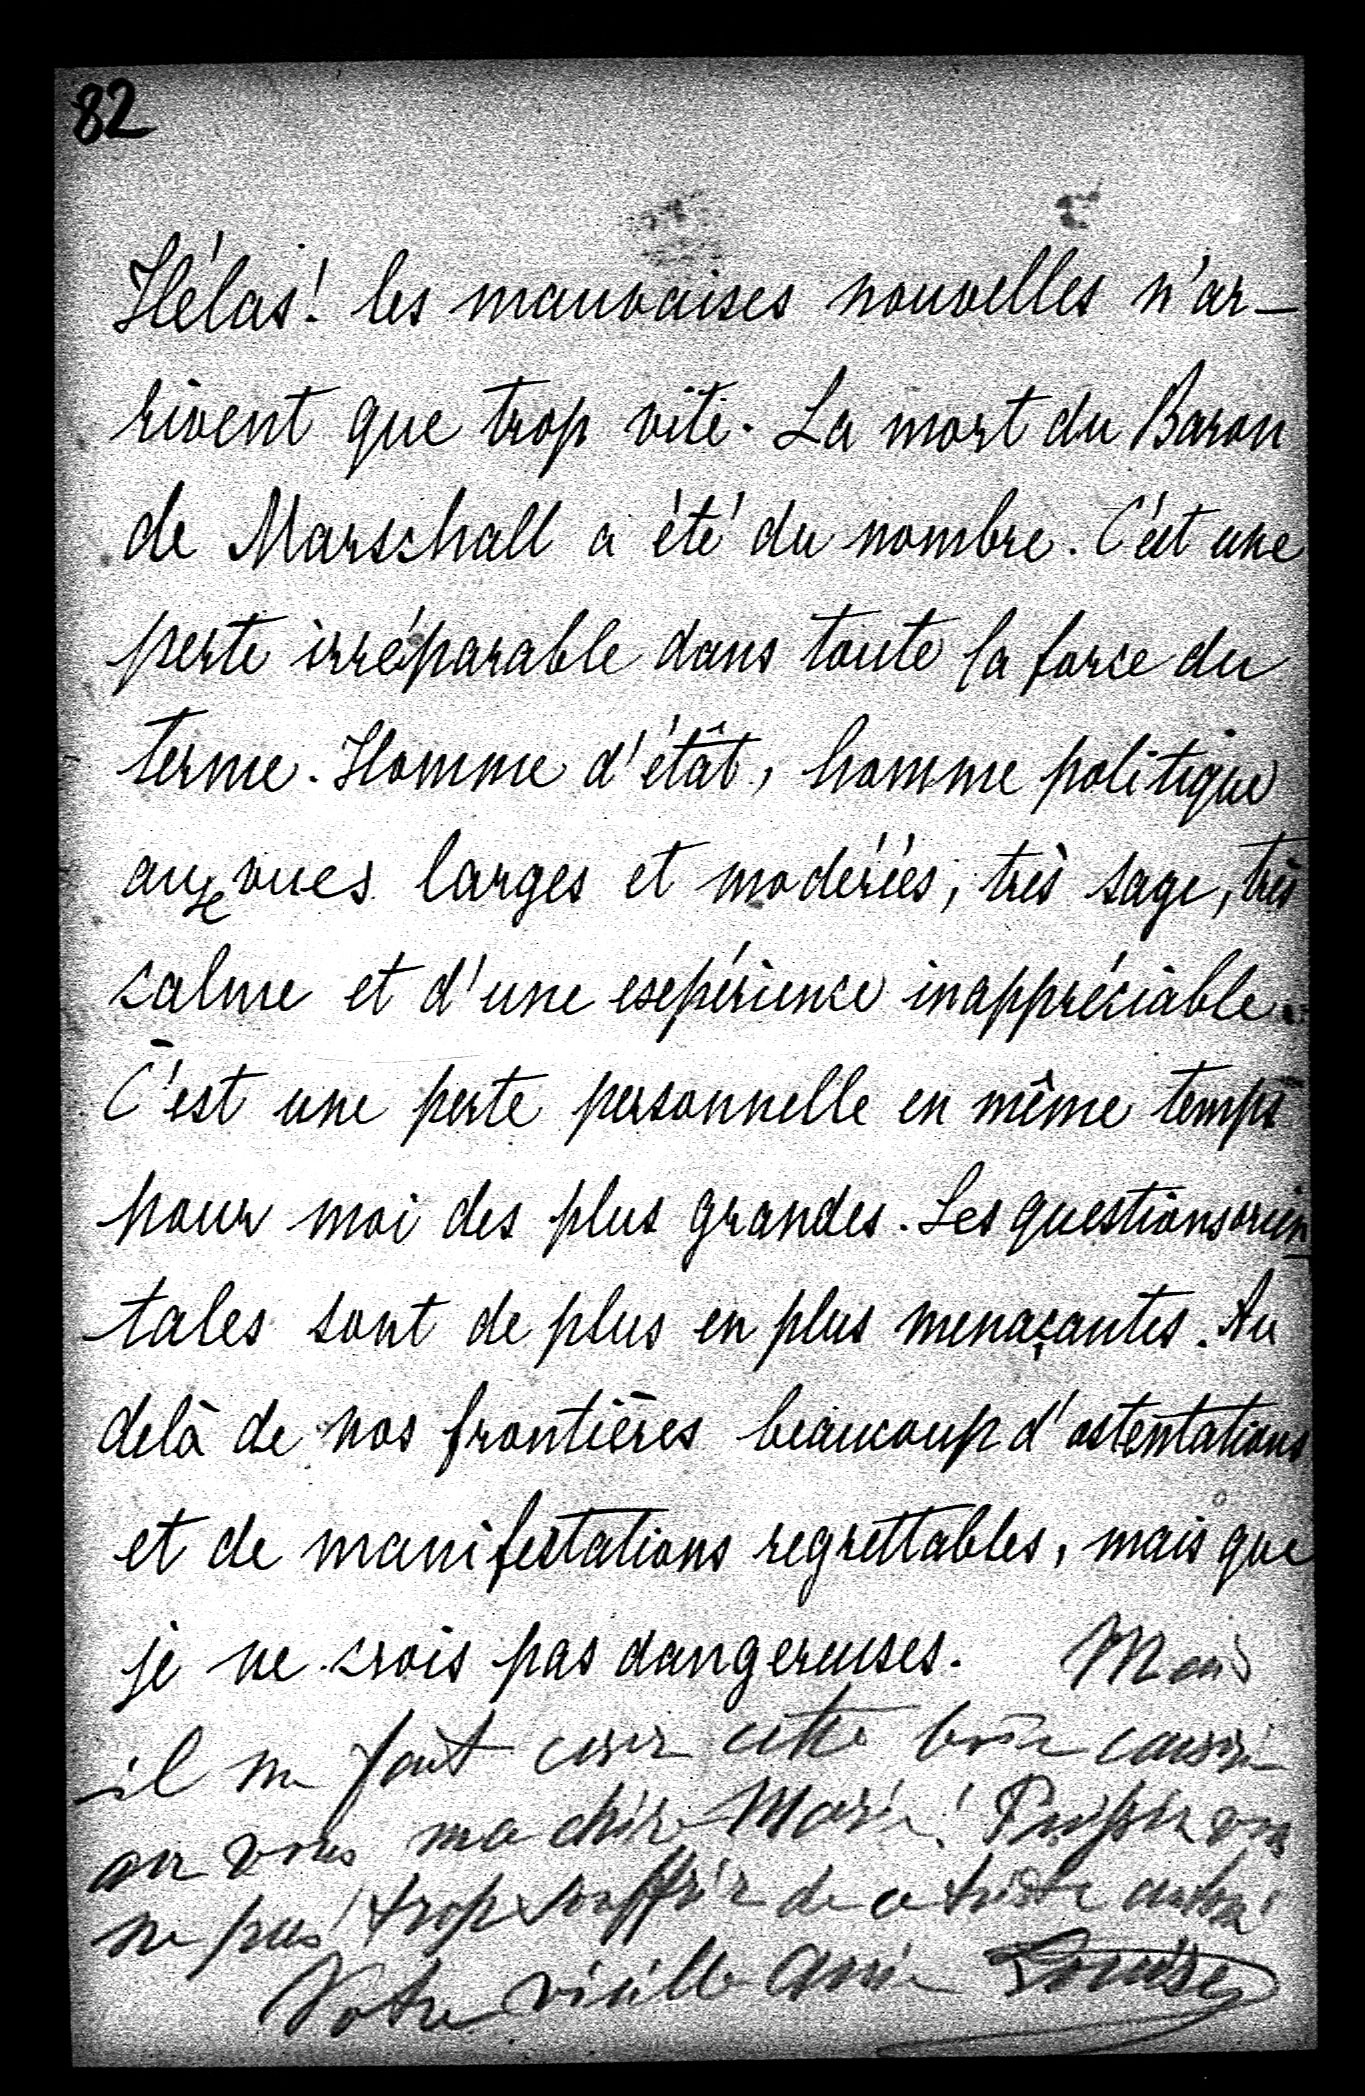 82
Hélas! les mauvaises nouvelles n'ar-
rivent que trop vite. La mort du Baron
de Marschall a été du nombre. C'est une
perte irréparable dans toute la force du
terme. Homme d'étât, homme politique
aux vues larges et modérées, très sage, très
calme et d'une expérience inappréciable.
C'est une perte personnelle en même temps
pour moi des plus grandes. Les questions orien
tales sont de plus en plus menaçantes. Au
delà de nos frontières beaucoup d'ostentations
et de manifestations regrettables, mais que
je ne crois pas dangereuses. Mais
il me faut cette
ma chère Marie! Puissiez vous
ne pas trop souffrir de ce triste
Votre vieille amie Louise